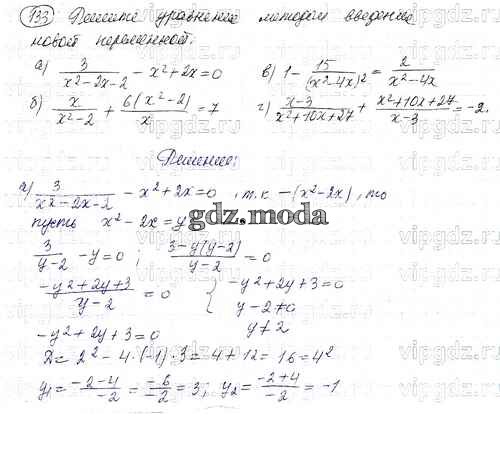 133 Решите уравнение методом введения
новой переменной.
а) 3/(x²-2x-2) - x²+2x=0 в) 1 - 15/(x²-4x)² = 2/(x²-4x)
б) x/(x²-2) + 6(x²-2)/x = 7 г) (x-3)/(x²+10x+27) + (x²+10x+27)/(x-3) = -2.
Решение:
а) 3/(x²-2x-2) - x²+2x=0, т.к -(x²-2x), то
пусть x²-2x=y
gdz.moda
3/(y-2) - y=0; (3-y(y-2))/(y-2) = 0
(-y²+2y+3)/(y-2) = 0 { -y²+2y+3=0
y-2≠0
y≠2
-y²+2y+3=0
D= 2²-4·(-1)·3= 4+12=16=4²
y₁= (-2-4)/-2 = -6/-2 = 3; y₂= (-2+4)/-2 = -1
vipgdz.ru